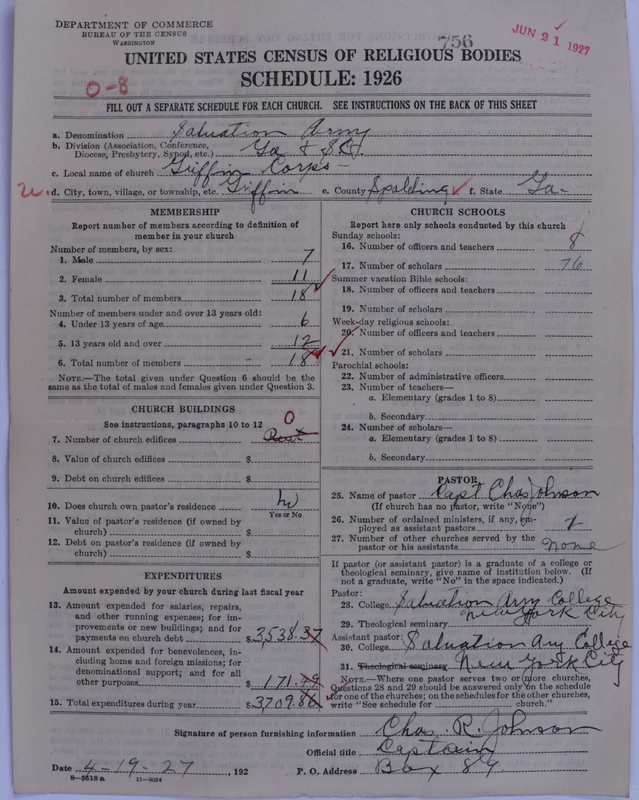 DEPARTMENT OF COMMERCE
BUREAU OF THE CENSUS
WASHINGTON
756
JUN 21 1927
UNITED STATES CENSUS OF RELIGIOUS BODIES
SCHEDULE: 1926
0-8
FILL OUT A SEPARATE SCHEDULE FOR EACH CHURCH. SEE INSTRUCTIONS ON THE BACK OF THIS SHEET
a. Denomination Salvation Army
b. Division (Association, Conference, Diocese, Presbytery, Synod, etc.) Ga & S.C.
c. Local name of church Griffin Corps
d. City, town, village, or township, etc. Griffin e. County Spalding f. State Ga-
MEMBERSHIP
Report number of members according to definition of member in your church
Number of members, by sex:
1. Male 7
2. Female 11
3. Total number of members 18
Number of members under and over 13 years old:
4. Under 13 years of age 6
5. 13 years old and over 12
6. Total number of members 18
NOTE.—The total given under Question 6 should be the same as the total of males and females given under Question 3.
CHURCH BUILDINGS
See instructions, paragraphs 10 to 12 0
7. Number of church edifices Rent
8. Value of church edifices $
9. Debt on church edifices $
10. Does church own pastor's residence
Yes or No
11. Value of pastor's residence (if owned by church) $
12. Debt on pastor's residence (if owned by church) $
EXPENDITURES
Amount expended by your church during last fiscal year
13. Amount expended for salaries, repairs, and other running expenses; for improvements or new buildings; and for payments on church debt $3,538.37
14. Amount expended for benevolences, including home and foreign missions; for denominational support; and for all other purposes $171.49
15. Total expenditures during year $3709.86
CHURCH SCHOOLS
Report here only schools conducted by this church
Sunday schools:
16. Number of officers and teachers 8
17. Number of scholars 76
Summer vacation Bible schools:
18. Number of officers and teachers
19. Number of scholars
Week-day religious schools:
20. Number of officers and teachers
21. Number of scholars
Parochial schools:
22. Number of administrative officers
23. Number of teachers—
a. Elementary (grades 1 to 8)
b. Secondary
24. Number of scholars—
a. Elementary (grades 1 to 8)
b. Secondary
PASTOR
25. Name of pastor Capt Chas Johnson
(If church has no pastor, write "None")
26. Number of ordained ministers, if any, employed as assistant pastors 1
27. Number of other churches served by the pastor or his assistants none
If pastor (or assistant pastor) is a graduate of a college or theological seminary, give name of institution below. (If not a graduate, write "No" in the space indicated.)
Pastor:
28. College Salvation Army College
New York City
29. Theological seminary
Assistant pastor:
30. College Salvation Army College
31. Theological seminary New York City
NOTE.—Where one pastor serves two or more churches, Questions 28 and 29 should be answered only on the schedule for one of the churches; on the schedules for the other churches, write "See schedule for church."
Signature of person furnishing information Chas. R. Johnson
Official title Captain
Date 4-19-27, 192 P. O. Address Box 89
8-5518a 11-9054